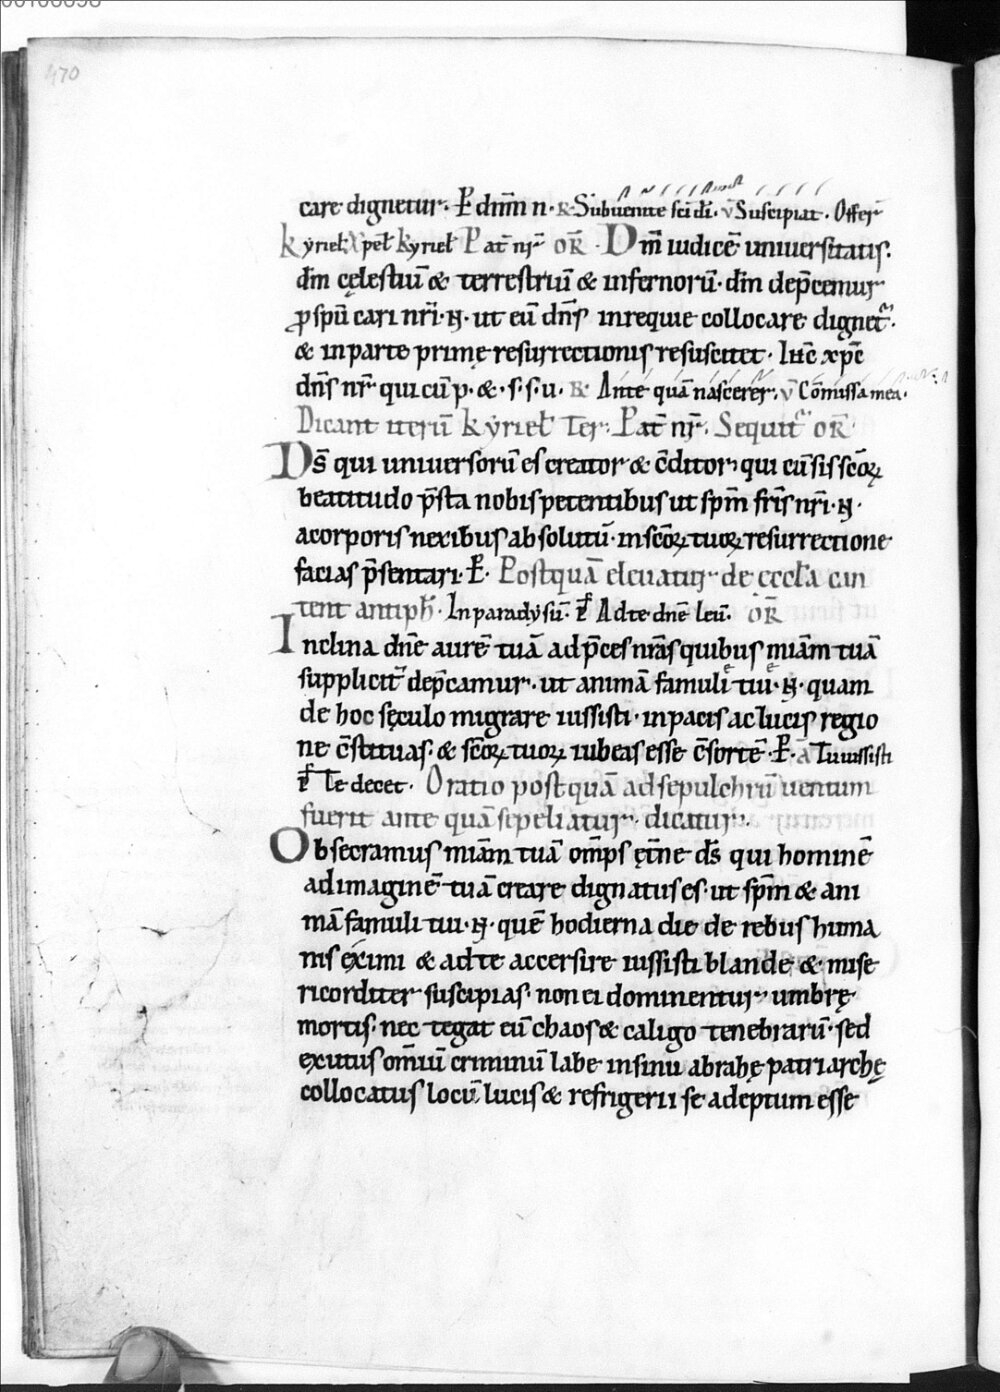 470
care dignetur. P̄ dnm̄ n. R. Subuenite sc̄i dī. V Suscipiat. Offer̄
kyriel̄ xpel̄ kyriel̄ Pat̄ nr̄ OR̄. Dm̄ iudicē uniuersitatis.
dm̄ cęlestiū & terrestriū & infernorū. dm̄ dep̄cemur
ꝓ spū cari nr̄i. N. ut eū dn̄s in requie collocare dignet̄.
& in parte primę resurrectionis resuscitet. Ih̄c xp̄c
dn̄s nr̄ qui cū p. &. s. s. u. R. Ante quā nascerer. V Cōmissa mea.
Dicant iterū kyriel̄ Ter. Pat̄ nr̄. Sequit̄ OR̄
Ds̄ qui uniuersorū es creator & c̄ditor, qui cū sis sc̄oꝝ
beatitudo p̄sta nobis petentibus ut sp̄m fr̄is nr̄i. N.
a corporis nexibus absolutū. in sc̄oꝝ tuoꝝ resurrectione
facias p̄sentari. P̄. Postquā eleuatur de eccl̄a can
tent antiph̄. In paradysū. P̄ Ad te dn̄e leu. OR̄
Inclina dn̄e aurē tuā ad p̄ces nr̄as quibus miām tuā
supplicit̄ dep̄camur. ut animā famuli tui. N. quam
de hoc sęculo migrare iussisti. in pacis ac lucis regio
ne c̄stituas. & sc̄oꝝ tuoꝝ iubeas esse c̄sortē. P̄. a Tu iussisti
P̄ Te decet. Oratio postquā ad sepulchrū uentum
fuerit ante quā sepeliatur. dicatur.
Obsecramus miām tuā om̄ps ęt̄ne ds̄ qui hominē
ad imaginē tuā creare dignatus es. ut sp̄m & ani
mā famuli tui. N. quē hodierna die de rebus huma
nis eximi & ad te accersire iussisti blande & mise
ricorditer suscipias. non ei dominentur umbrę
mortis. nec tegat eū chaos & caligo tenebrarū. sed
exutus om̄iū criminū labe in sinu abrahę patriarchę
collocatus locū lucis & refrigerii se adeptum esse